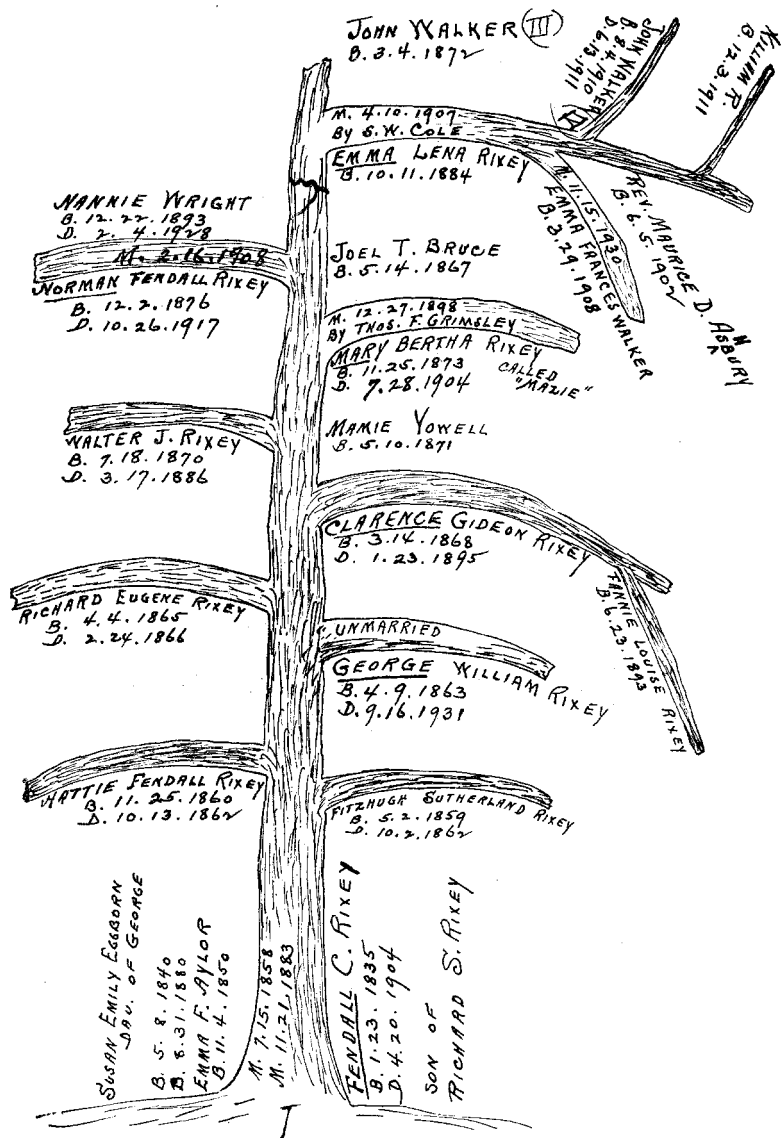 JOHN WALKER (III)
B. 3.4.1872
M. 4.10.1907
BY S.W. COLE
EMMA LENA RIXEY
B. 10.11.1884
JOHN WALKER (IV)
B. 8.4.1910
D. 6.13.1911
WILLIAM R.
B. 12.3.1911
M. 11.15.1930
EMMA FRANCES WALKER
B. 3.29.1908
REV. MAURICE D. ASHBURY
B. 6.5.1902
NANNIE WRIGHT
B. 12.22.1893
D. 2.4.1928
M. 2.16.1908
NORMAN FENDALL RIXEY
B. 12.2.1876
D. 10.26.1917
JOEL T. BRUCE
B. 5.14.1867
M. 12.27.1898
BY THOS. F. GRIMSLEY
MARY BERTHA RIXEY
B. 11.25.1873
D. 7.28.1904
CALLED
"MAZIE"
WALTER J. RIXEY
B. 7.18.1870
D. 3.17.1886
MAMIE YOWELL
B. 5.10.1871
CLARENCE GIDEON RIXEY
B. 3.14.1868
D. 1.23.1895
FANNIE LOUISE RIXEY
B. 6.23.1893
RICHARD EUGENE RIXEY
B. 4.4.1865
D. 2.24.1866
UNMARRIED
GEORGE WILLIAM RIXEY
B. 4.9.1863
D. 9.16.1931
HATTIE FENDALL RIXEY
B. 11.25.1860
D. 10.13.1862
FITZHUGH SUTHERLAND RIXEY
B. 5.2.1859
D. 10.2.1862
SUSAN EMILY EGGBORN
DAU. OF GEORGE
B. 5.8.1840
B. 8.31.1880
EMMA F. AYLOR
B. 11.4.1850
M. 7.15.1858
M. 11.21.1883
FENDALL C. RIXEY
B. 1.23.1835
D. 4.20.1904
SON OF
RICHARD S. RIXEY